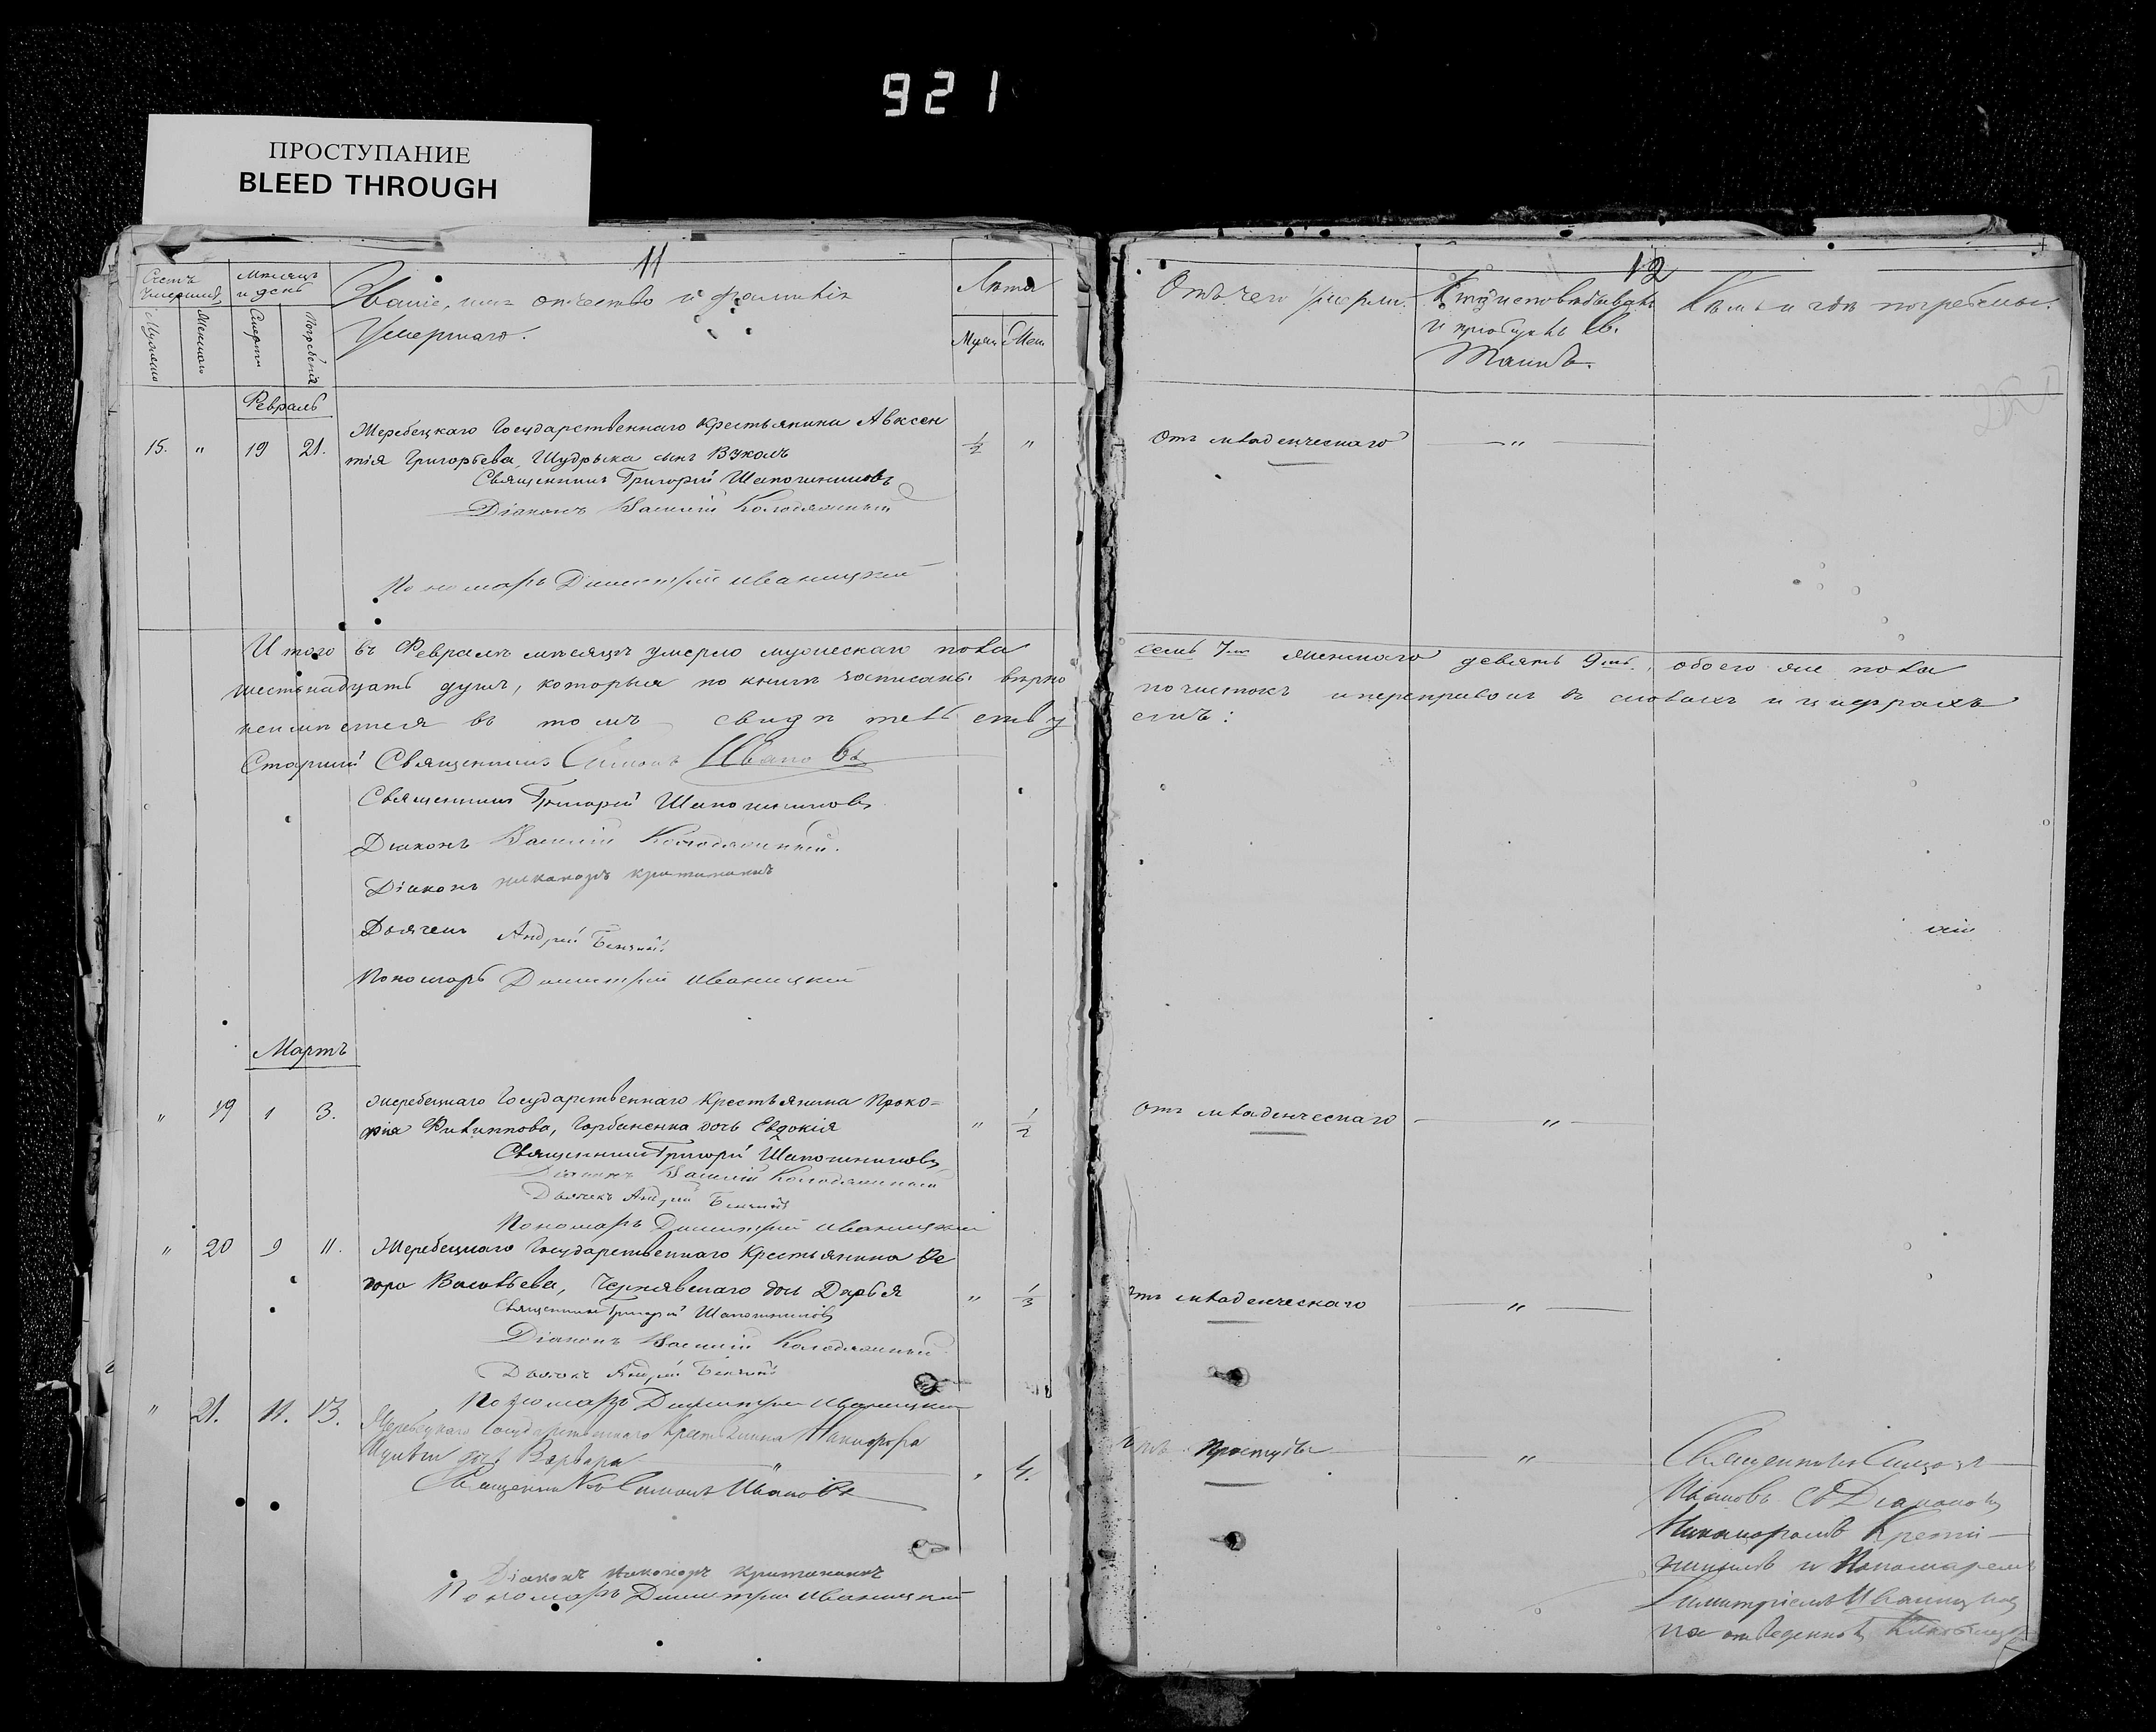 921
ПРОСТУПАНИЕ
BLEED THROUGH
11
Счетъ умершихъ
Мѣсяцъ и день
Званіе, имя отчество и фамилія
Умершаго.
Лѣта
Мужескаго
Женскаго
Смерти
Погребенія
Муж
Жен
Февраль
15. " 19 21. Жеребецкаго Государственнаго Крестьянина Авксен
тія Григорьева, Шудрыка сынъ Вуколъ 1/2 "
Священникъ Григорій Шапошниковъ
Діаконъ Василій Колодяжный
Пономарь Димитрій Иваницкій
Итого въ Февралѣ мѣсяцѣ умерло мужескаго пола
шестьнадцать душъ, которыя по книгѣ записаны вѣрно
въ томъ свидѣтельству
Старшій Священникъ Симонъ Ивановъ
Священникъ Григорій Шапошниковъ
Діаконъ Василій Колодяжный.
Діаконъ Никаноръ
Дьячекъ Андрей
Пономарь Димитрій Иваницкій
Мартъ
" 19 1 3. Жеребецкаго Государственнаго Крестьянина Проко=
пія Филиппова, Горбаненка дочь Евдокія " 1/2
Священникъ Григорій Шапошниковъ
Діаконъ Василій Колодяжный
Дьячекъ Андрей
Пономарь Димитрій Иваницкій
" 20 9 11. Жеребецкаго Государственнаго Крестьянина Ѳе
дора Васильева, Чернявскаго дочь Дарья " 1/3
Священникъ Григорій Шапошниковъ
Діаконъ Василій Колодяжный
Дьячекъ Андрей
Пономарь Димитрій Иваницкій
" 21. 11. 13. Жеребецкаго Государственнаго Крестьянина Никифора
дочь Варвара " 4.
Священникъ Симонъ Ивановъ
Діаконъ Никаноръ
Пономарь Димитрій Иваницкій
12
Отъ чего умерли.
Кто исповѣдывалъ
и пріобщалъ Св.
Таинъ.
Кѣмъ и гдѣ погребены.
Отъ младенческаго "
семь 7мь женскаго девять 9ть, обоего же пола
по чисткѣ и переправокъ въ словахъ и цифрахъ
емъ:
Отъ младенческаго "
Отъ младенческаго "
Отъ простуды "
Священникъ Симонъ
Ивановъ съ Діакономъ
Никаноромъ
и Пономаремъ
Димитріемъ Иваницкимъ
на отведенномъ Кладбищѣ